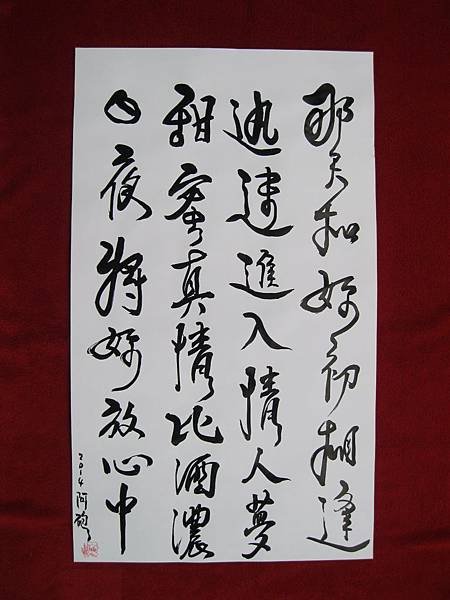 那天和妳初相逢
迅速進入情人夢
甜蜜真情比酒濃
日夜將妳放心中
2014 阿